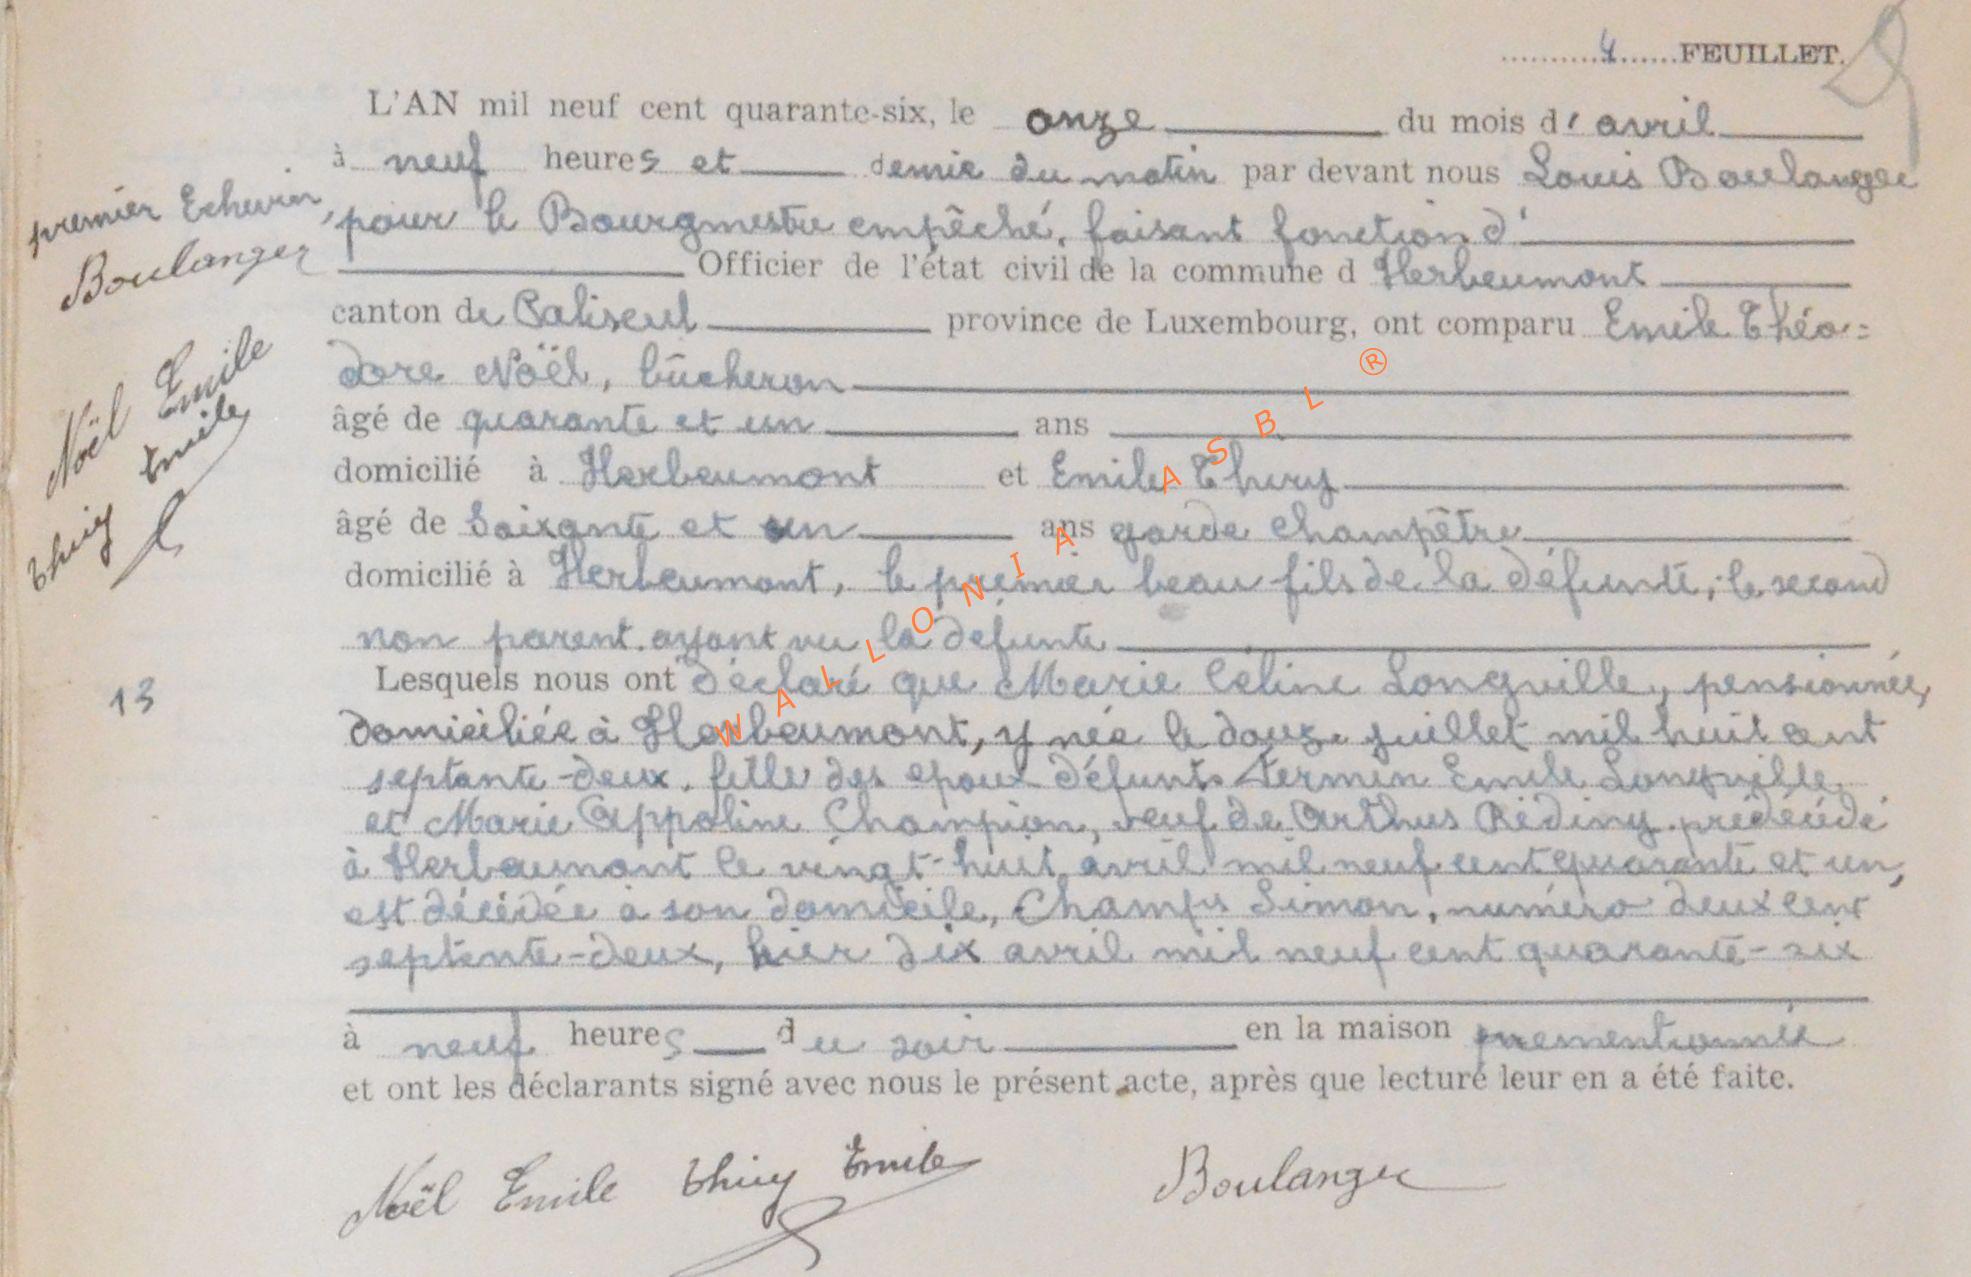 4 FEUILLET.
L'AN mil neuf cent quarante-six, le onze du mois d'avril
à neuf heures et demie du matin par devant nous Louis Boulanger
premier Echevin,
pour le Bourgmestre empêché, faisant fonction d'
Boulanger
Officier de l'état civil de la commune d Herbeumont
canton de Paliseul province de Luxembourg, ont comparu Emile Théo=
dore Noël, bûcheron
Noël Emile
âgé de quarante et un ans
domicilié à Herbeumont et Emile Thiry
Thiry Emile
âgé de soixante et un ans garde champêtre
domicilié à Herbeumont, le premier beau-fils de la défunte, le second
non parent ayant vu la défunte
13
Lesquels nous ont déclaré que Marie Céline Longville, pensionnée,
domiciliée à Herbeumont, y née le douze juillet mil huit cent
septante-deux, fille des epoux défunts Firmin Emile Longville
et Marie Appoline Champion, veuf de Arthus Réding prédécédé
à Herbeumont le vingt-huit avril mil neuf cent quarante et un,
est décédée à son domicile, Champs Simon, numéro deux cent
septante-deux, hier dix avril mil neuf cent quarante-six
à neuf heures du soir en la maison prementionnée
et ont les déclarants signé avec nous le présent acte, après que lecture leur en a été faite.
Noël Emile Thiry Emile Boulanger
WALLONIA ASBL ®